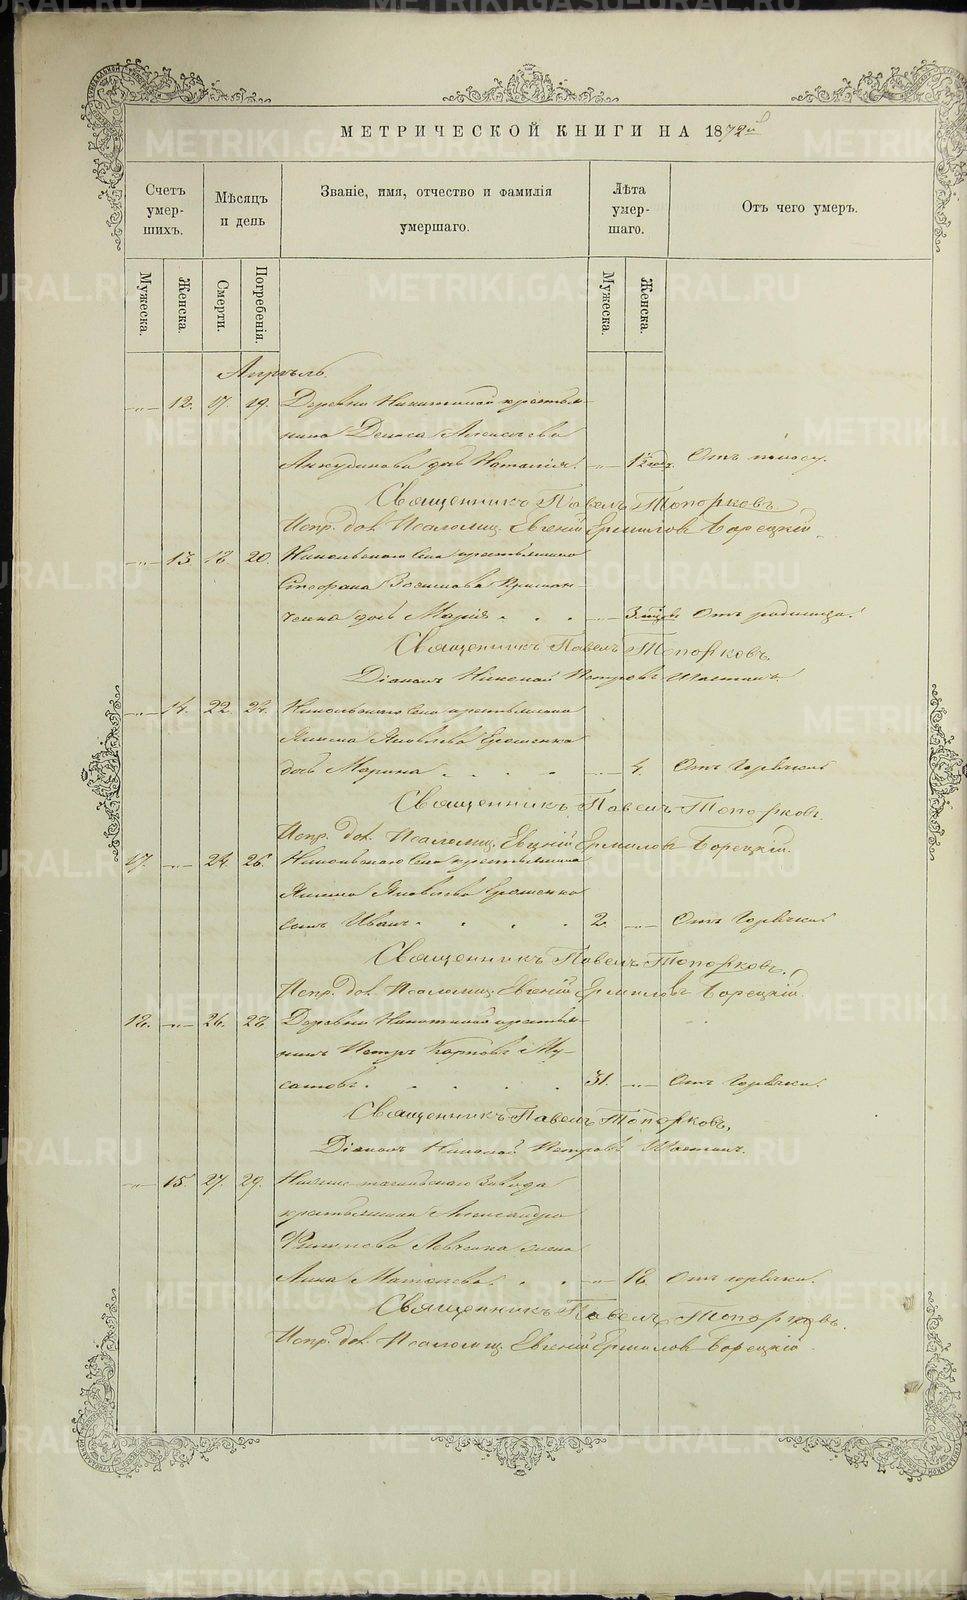 МЕТРИЧЕСКОЙ КНИГИ НА 1872й
Счетъ умер-шихъ.
Мѣсяцъ и день
Званіе, имя, отчество и фамилія умершаго.
Лѣта умер-шаго.
Отъ чего умеръ.
Мужеска.
Женска.
Смерти.
Погребенія.
Мужеска.
Женска.
Апрѣль.
-"- 12. 17. 19. Деревни Никитиной крестья-
нина Дениса Алексѣева
дочь Наталія. -"- Отъ поносу.
Священникъ Павелъ Топорковъ
Испр. дол. Псаломщ. Евгеній Ермиловъ Борецкій.
-"- 13. 18. 20. Никольскаго Села крестьянина
Стефана
дочь Марія -"- 3. Отъ родимца.
Священникъ Павелъ Топорковъ.
Діаконъ Николай Петровъ
-"- 14. 22. 24. Никольскаго Села крестьянина
Якима Яковлева Ерошенка
дочь Марина -"- 4. Отъ Горячки
Священникъ Павелъ Топорковъ.
Испр. дол. Псаломщ. Евгеній Ермиловъ Борецкій.
17. -"- 24. 26. Никольскаго Села крестьянина
Якима Яковлева Ерошенка
сынъ Иванъ 2. -"- Отъ Горячки
Священникъ Павелъ Топорковъ.
Испр. дол. Псаломщ. Евгеній Ермиловъ Борецкій.
18. -"- 26. 28. Деревни Никитиной крестья-
нинъ Петръ Карповъ Му-
сатовъ. 31. -"- Отъ Горячки.
Священникъ Павелъ Топорковъ.
Діаконъ Николай Петровъ
-"- 15. 27. 29. Нижне-тагильскаго Завода
крестьянина Александра
Филипова жена
Анна Матвѣева. -"- 18. Отъ горячки.
Священникъ Павелъ Топорковъ.
Испр. дол. Псаломщ. Евгеній Ермиловъ Борецкій
METRIKI.GASO-URAL.RU